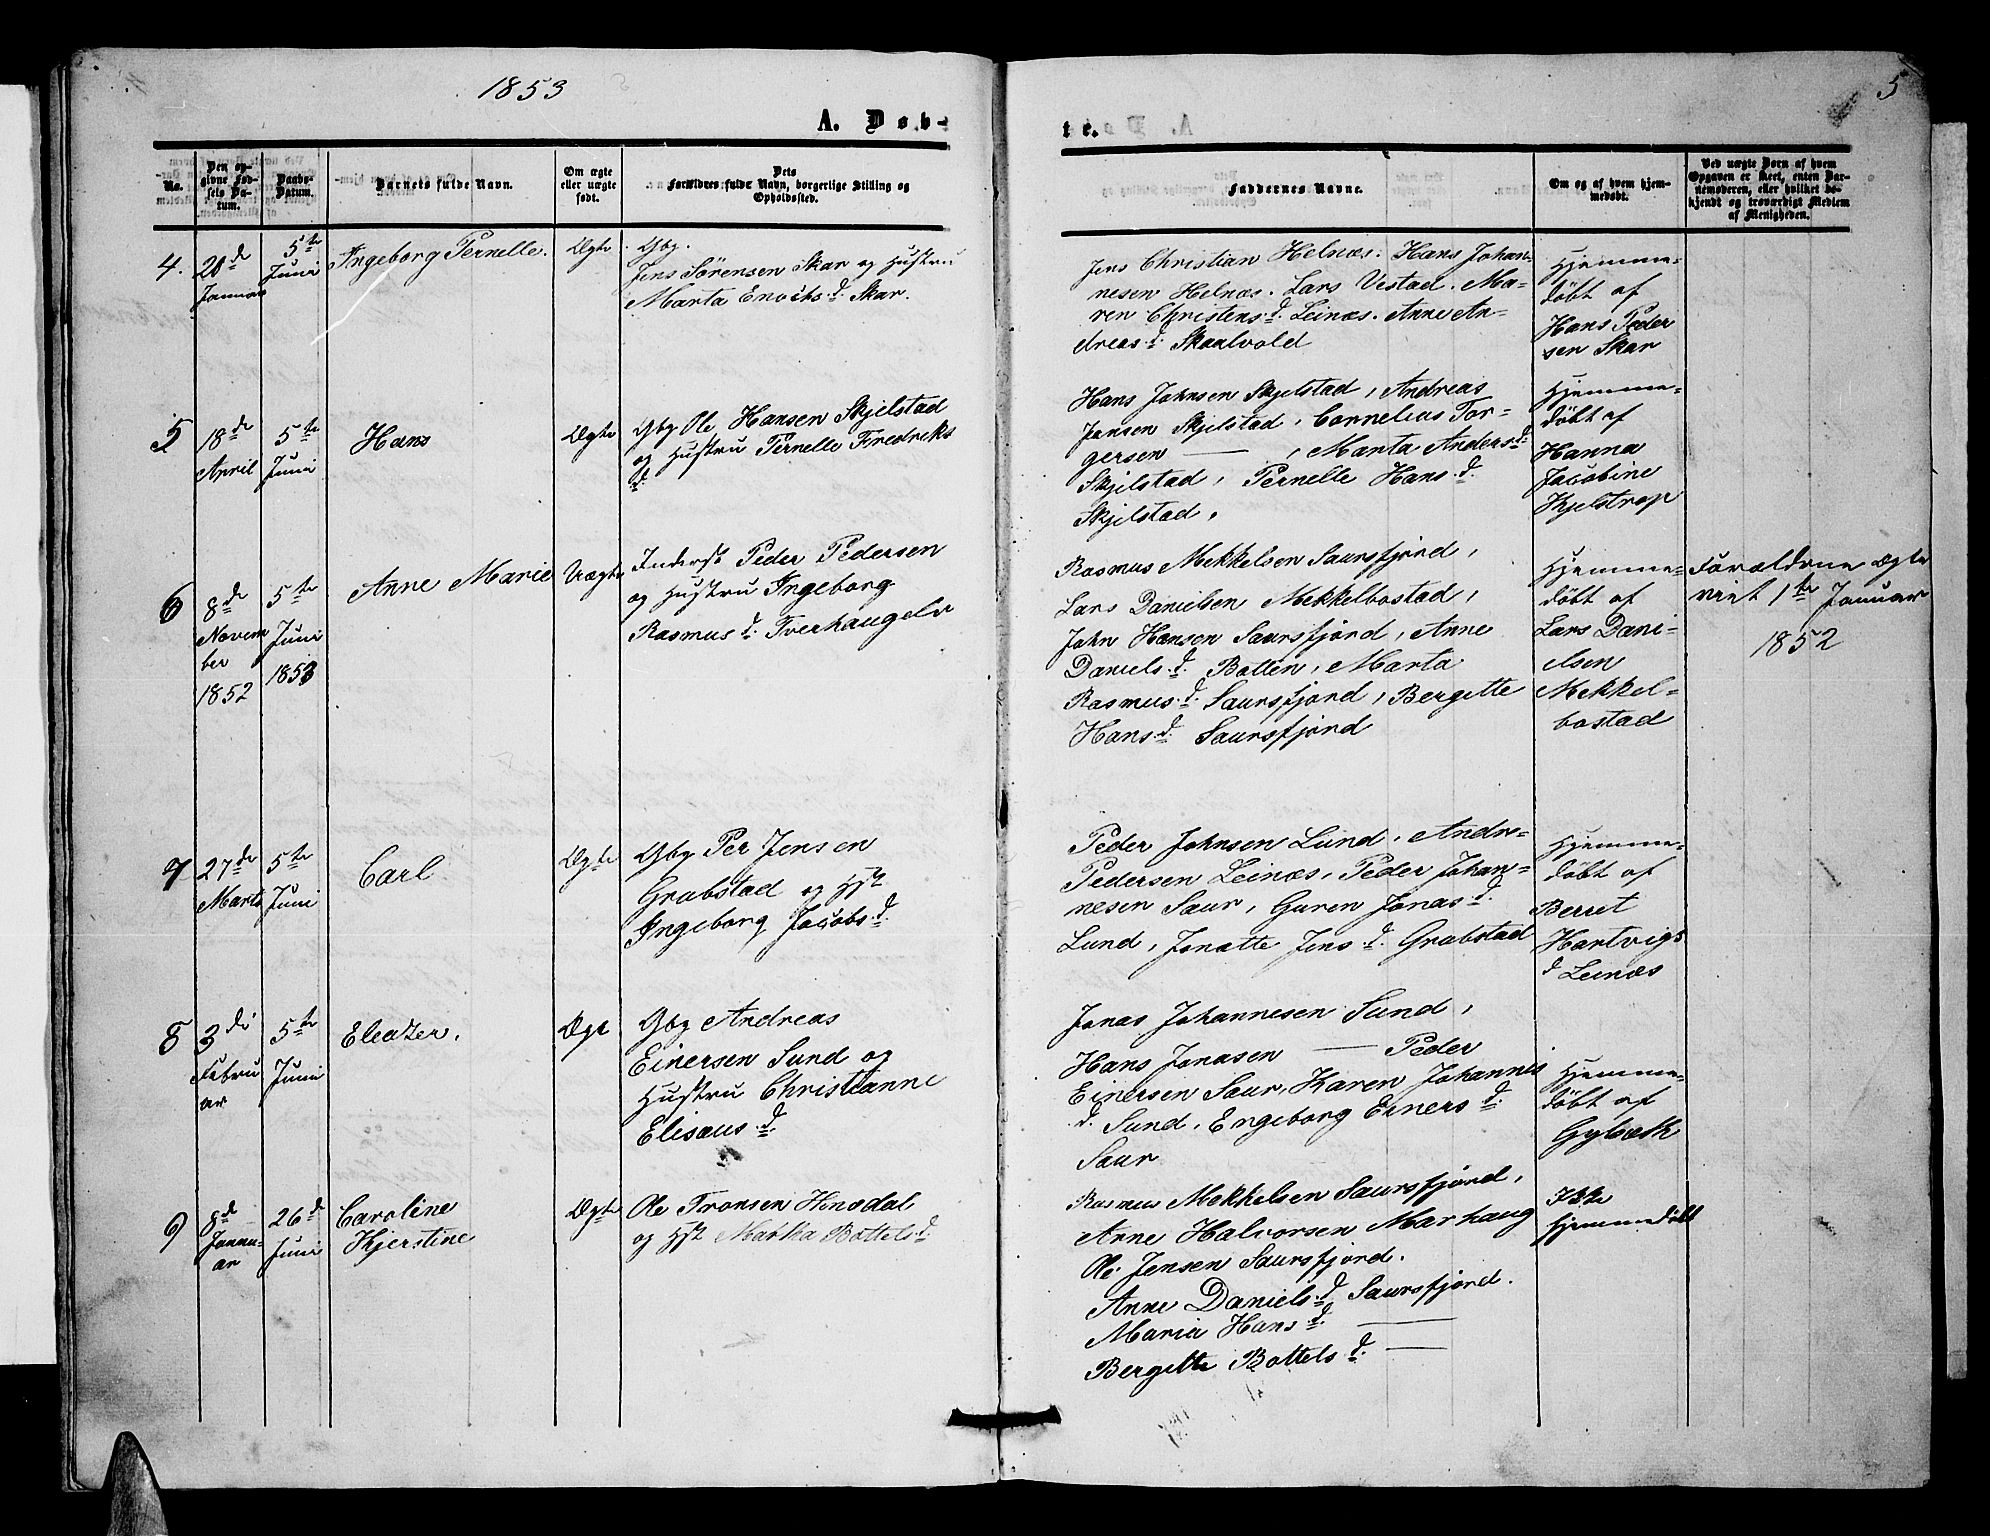 1853
5
A. Døb-
te.
No.
Den op-
givne Fød-
sels Da-
tum.
Daabs-
Datum.
Barnets fulde Navn.
Om ægte
eller uægte
født.
Dets
Forældres fulde Navn, borgerlige Stilling og
Opholdssted.
Faddernes Navne.
Om og af hvem hjem-
medøbt.
Ved uægte Børn af hvem
Opgaven er skeet, enten Bar-
nemoderen, eller hvilket be-
kjendt og troværdigt Medlem
af Menigheden.
4.
20de
Januar
5te
Juni
Ingeborg Pernelle.
Ægte
Gbg.
Jens Sörensen Skar og Hustru
Marta Enochs d. Skar.
Jens Christian Helnæs. Hans Johan-
nesen Helnæs. Lars Vestad. Ma-
ren Christens d. Leinæs. Anne An-
dreas d. Skaalvold
Hjemme-
döbt af
Hans Peder
sen Skar
5
18de
April
5te
Juni
Hans
Ægte
Gbg Ole Hansen Skjelstad
og Hustru Pernelle Fredriks
d.
Hans Johnsen Skjelstad, Andreas
Jansen Skjelstad, Cornelius Tor-
gersen — , Marta Anders d.
Skjelstad, Pernelle Hans d.
Skjelstad,
Hjemme-
döbt af
Hanna
Jacobine
Kjelstrop
6
8de
Novem
ber
1852
5te
Juni
1853
Anne Marie
Uægte
Inderst Peder Pedersen
og Hustru Ingeborg
Rasmus d. Tverhaugelv
Rasmus Mekkelsen Saursfjord,
Lars Danielsen Mekkelbostad,
John Hansen Saursfjord, Anne
Daniels d. Botten, Marta
Rasmus d. Saursfjord, Bergitte
Hans d. Saursfjord
Hjemme-
döbt af
Lars Dani-
elsen
Mekkel-
bostad
Forældrene Ægte
viet 1te Januar
1852
7
27de
Marts
5te
Juni
Carl
Ægte
Gbg Per Jensen
Grabstad og Hst
Ingeborg Jacobs d.
Peder Johnsen Lund, Andr-
Pedersen Leinæs, Peder Johan-
nesen Saur, Guren Jonas d.
Lund, Jonette Jens d. Grabstad
Hjemme-
döbt af
Berret
Hartvigs
d Leinæs
8
3di
Febru
ar
5te
Juni
Eleazer.
Ægt
Gbg Andreas
Einersen Sund og
Hustru Christianne
Elisæus d.
Jonas Johannesen Sund,
Hans Jonasen — Peder
Einersen Saur, Karen Johannes
d. Sund, Engeborg Einers d.
Saur
Hjemme-
döbt af
Gylseth
9
8de
Janu-
ar
26de
Juni
Caroline
Kjerstine
Ægte
Ole Tronsen
og Hst Martha Bottels d.
Rasmus Mekkelsen Saursfjord,
Anne Halvorsen Marhaug
Ole Jensen Saursfjord.
Anne Daniels d. Saursfjord.
Maria Hans d. —
Bergitte Bottels d. —
Ikke
hjemmedöbt